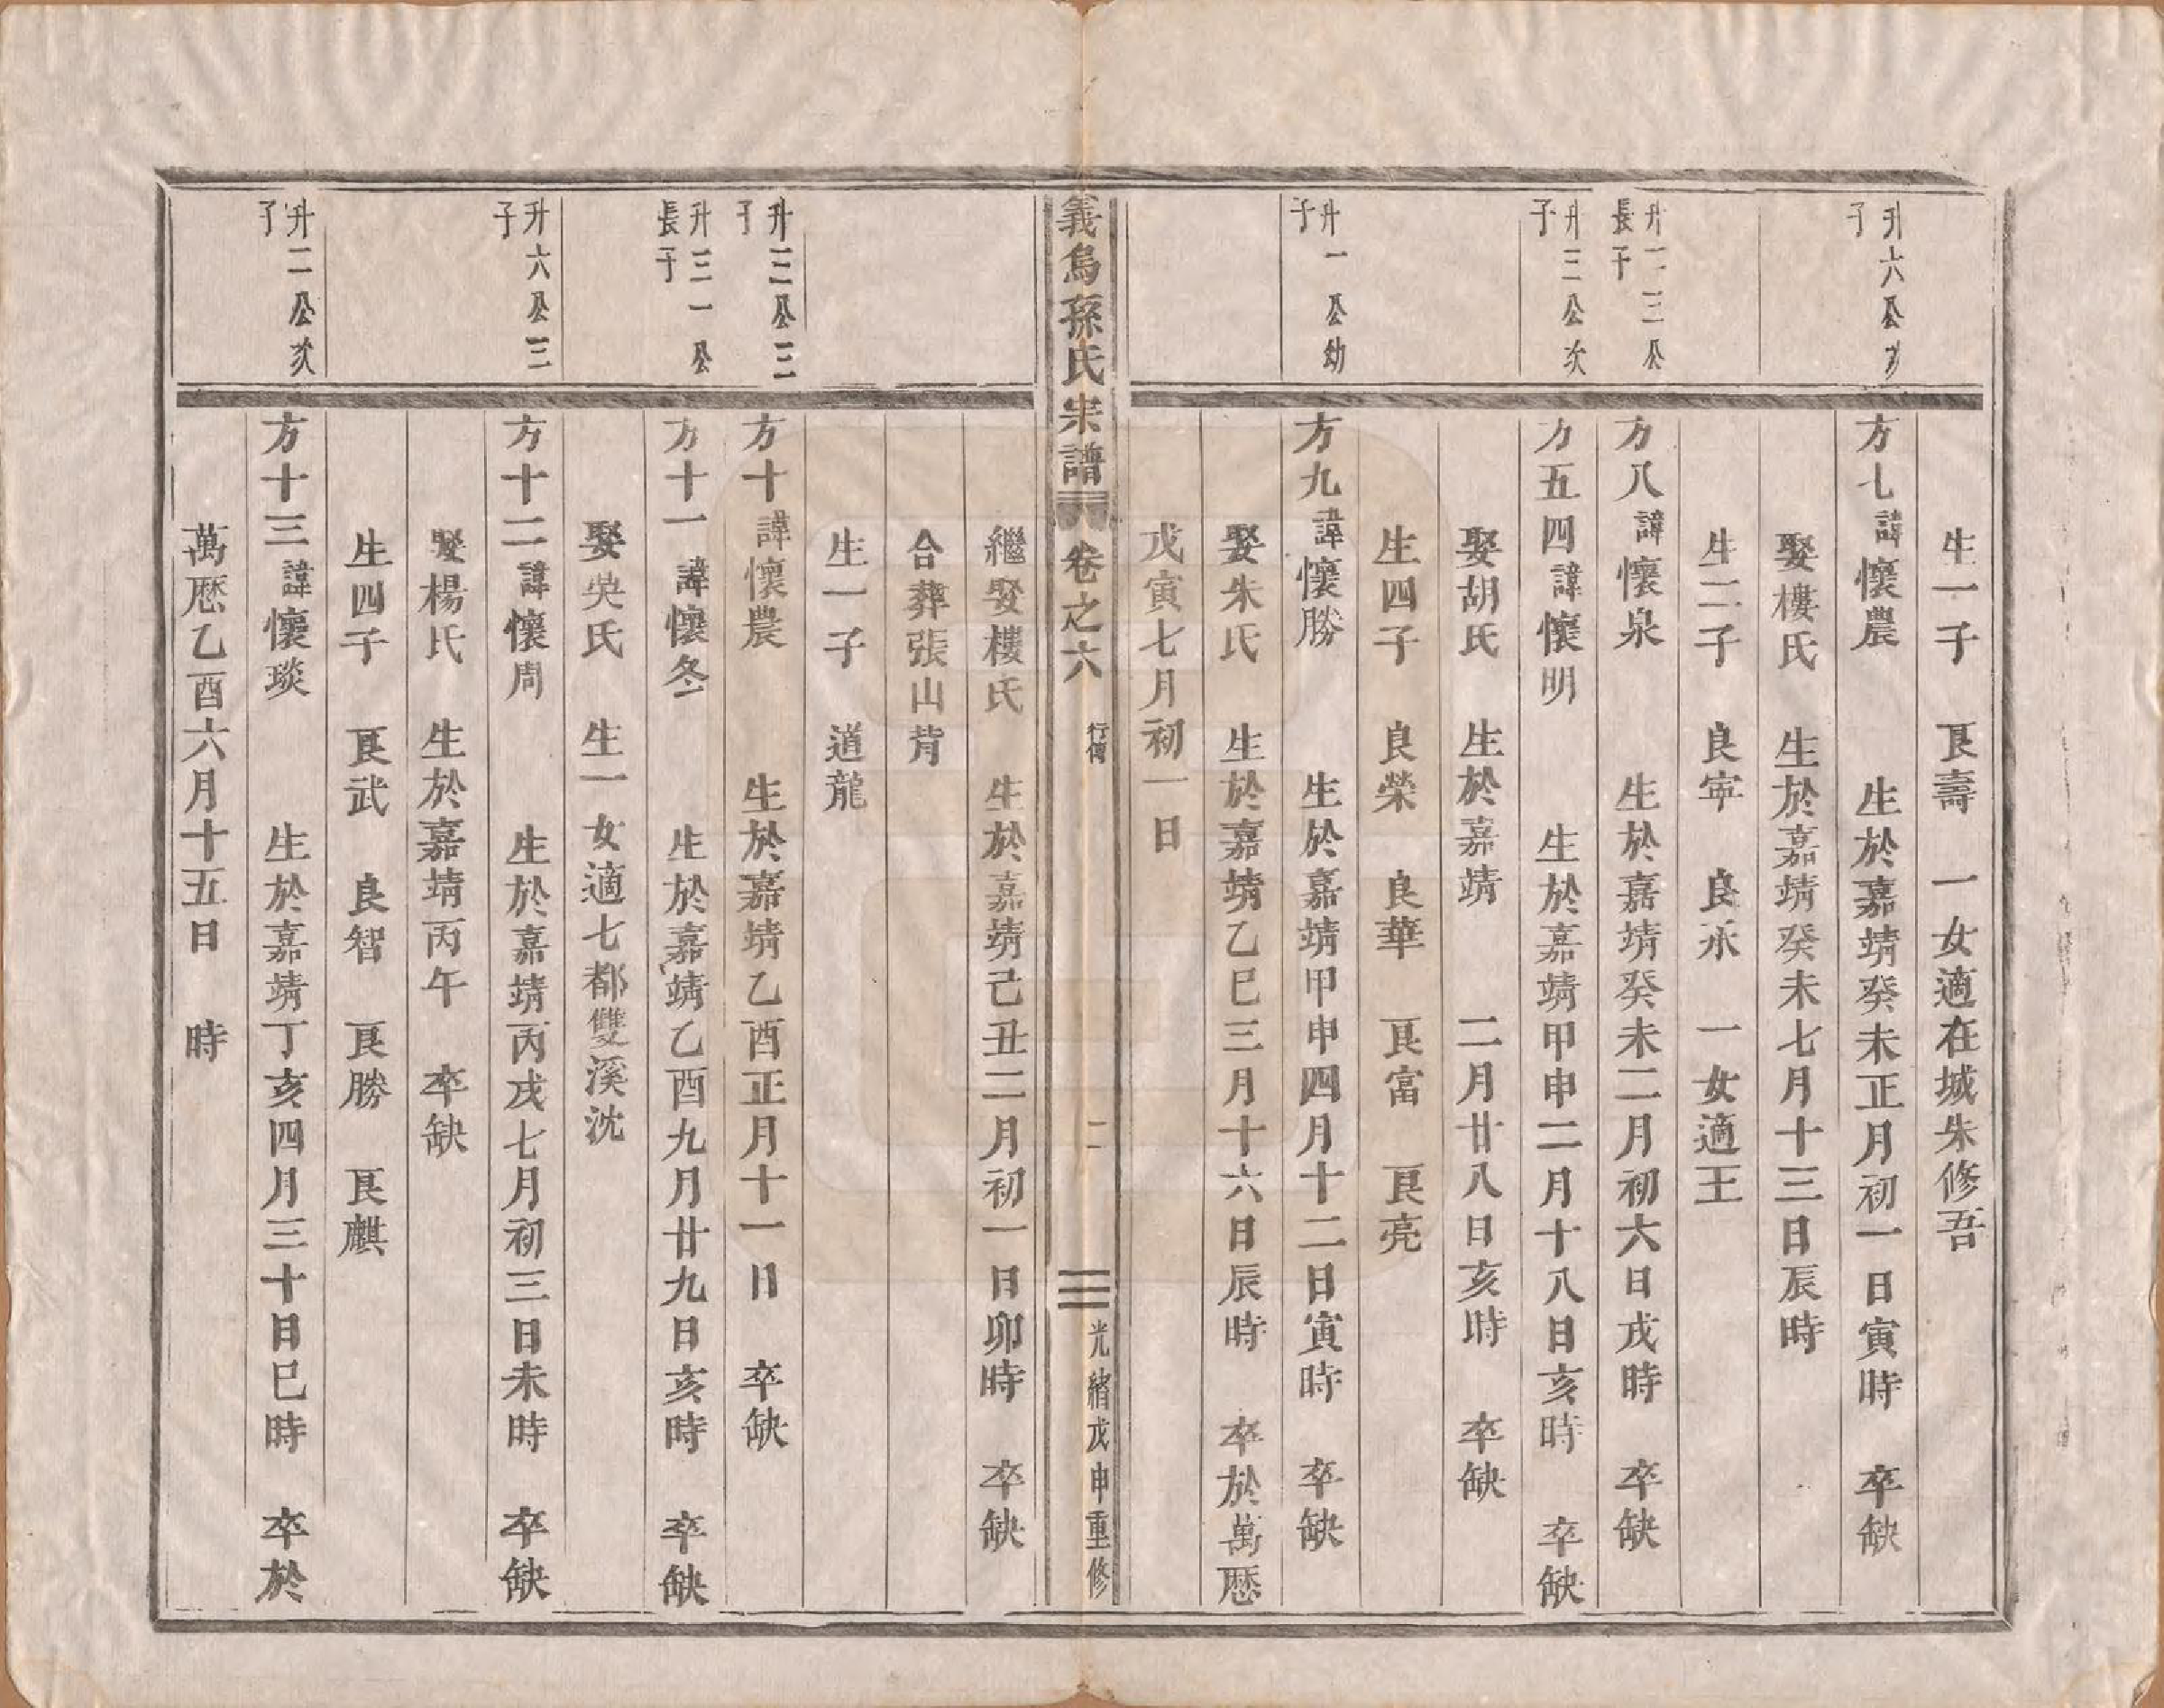 生一子　良壽　一女適在城朱修吾
升六公次子
方七諱懷農　生於嘉靖癸未正月初一日寅時　卒缺
娶樓氏　生於嘉靖癸未七月十三日辰時
生二子　良宰　良永　一女適王
升一三公長子
方八諱懷泉　生於嘉靖癸未二月初六日戌時　卒缺
升三公次子
方五四諱懷明　生於嘉靖甲申二月十八日亥時　卒缺
娶胡氏　生於嘉靖　二月廿八日亥時　卒缺
生四子　良榮　良華　良富　良亮
升一公幼子
方九諱懷勝　生於嘉靖甲申四月十二日寅時　卒缺
娶朱氏　生於嘉靖乙巳三月十六日辰時　卒於萬歷
戊寅七月初一日
義烏孫氏宗譜　卷之六　行傳　二　光緒戊申重修
繼娶樓氏　生於嘉靖己丑二月初一日卯時　卒缺
合葬張山背
生一子　道龍
升三公三子
方十諱懷農　生於嘉靖乙酉正月十一日　卒缺
升三一公長子
方十一諱懷冬　生於嘉靖乙酉九月廿九日亥時　卒缺
娶吳氏　生一女適七都雙溪沈
升六公三子
方十二諱懷周　生於嘉靖丙戌七月初三日未時　卒缺
娶楊氏　生於嘉靖丙午　卒缺
生四子　良武　良智　良勝　良麒
升二公次子
方十三諱懷琰　生於嘉靖丁亥四月三十日巳時　卒於
萬歷乙酉六月十五日　時